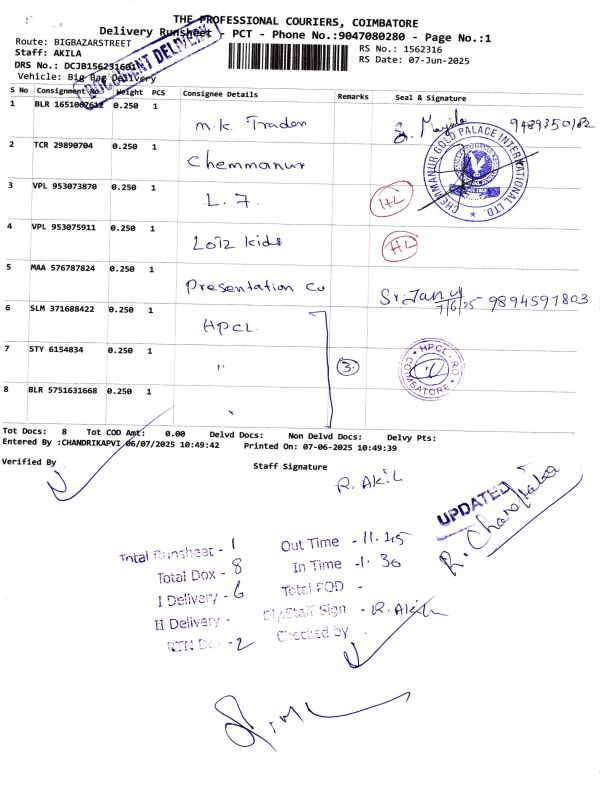 THE PROFESSIONAL COURIERS, COIMBATORE
Delivery Runsheet - PCT - Phone No.:9047080280 - Page No.:1
Route: BIGBAZARSTREET
RS No.: 1562316
Staff: AKILA
RS Date: 07-Jun-2025
DRS No.: DCJB156231601
Vehicle: Big Bag Delivery
DOCUMENT DELIVERY
S No Consignment No. Weight PCS Consignee Details Remarks Seal & Signature
1 BLR 1651067612 0.250 1 M.K. Trader
2 TCR 29890704 0.250 1 Chemmanur
CHEMMANUR GOLD PALACE INTERNATIONAL LTD.
3 VPL 953073870 0.250 1 L.7 HL
4 VPL 953075911 0.250 1 Loiz kids HL
5 MAA 576787824 0.250 1 Presentation Co 7/6/25 9894597803
6 SLM 371688422 0.250 1 HPCL.
7 STY 6154834 0.250 1 " 3.
HPCL-RO COIMBATORE
8 BLR 5751631668 0.250 1
Tot Docs: 8 Tot COD Amt: 0.00 Delvd Docs: Non Delvd Docs: Delvy Pts:
Entered By :CHANDRIKAPVI 06/07/2025 10:49:42 Printed On: 07-06-2025 10:49:39
Verified By
Staff Signature
R. Akil
UPDATED
Total Runsheet - 1 Out Time - 11.45
Total Dox - 8 In Time - 1.30
I Delivery - 6 Total POD -
II Delivery - Dly.Staff Sign - R. Akil
RTN Dox - 2 Checked by